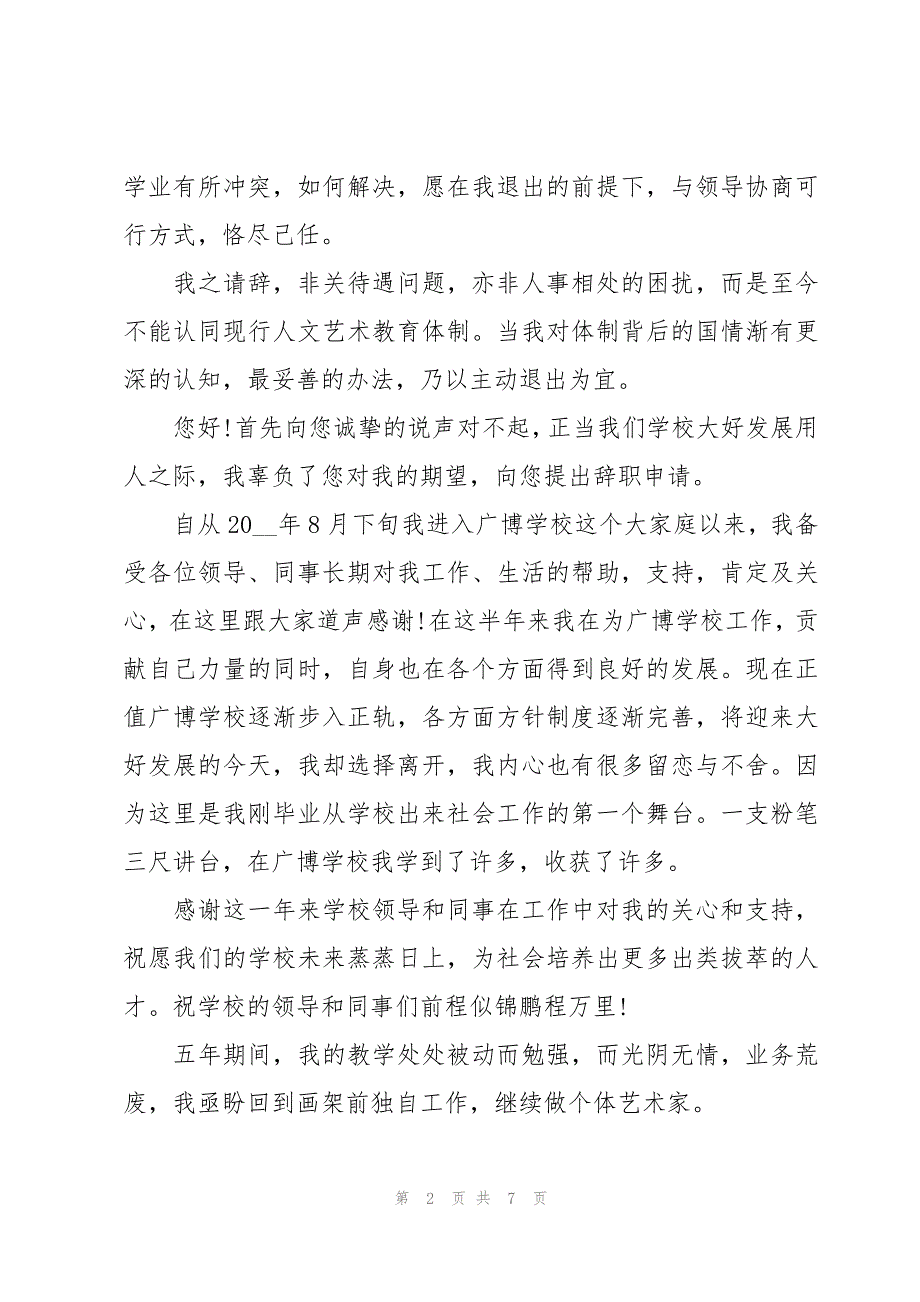 学业有所冲突，如何解决，愿在我退出的前提下，与领导协商可
行方式，恪尽己任。
我之请辞，非关待遇问题，亦非人事相处的困扰，而是至今
不能认同现行人文艺术教育体制。当我对体制背后的国情渐有更
深的认知，最妥善的办法，乃以主动退出为宜。
您好!首先向您诚挚的说声对不起，正当我们学校大好发展用
人之际，我辜负了您对我的期望，向您提出辞职申请。
自从 20__年 8 月下旬我进入广博学校这个大家庭以来，我备
受各位领导、同事长期对我工作、生活的帮助，支持，肯定及关
心，在这里跟大家道声感谢!在这半年来我在为广博学校工作，贡
献自己力量的同时，自身也在各个方面得到良好的发展。现在正
值广博学校逐渐步入正轨，各方面方针制度逐渐完善，将迎来大
好发展的今天，我却选择离开，我内心也有很多留恋与不舍。因
为这里是我刚毕业从学校出来社会工作的第一个舞台。一支粉笔
三尺讲台，在广博学校我学到了许多，收获了许多。
感谢这一年来学校领导和同事在工作中对我的关心和支持，
祝愿我们的学校未来蒸蒸日上，为社会培养出更多出类拔萃的人
才。祝学校的领导和同事们前程似锦鹏程万里!
五年期间，我的教学处处被动而勉强，而光阴无情，业务荒
废，我亟盼回到画架前独自工作，继续做个体艺术家。
第 2 页 共 7 页